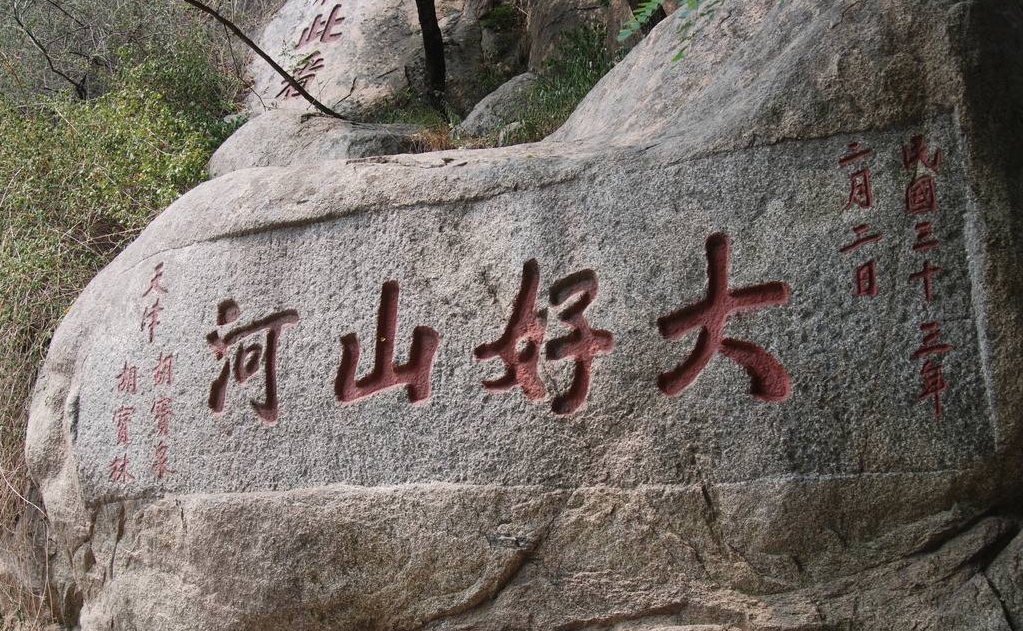 此
民國三十三年
二月二日
大好山河
天津 胡寶泉
胡寶林